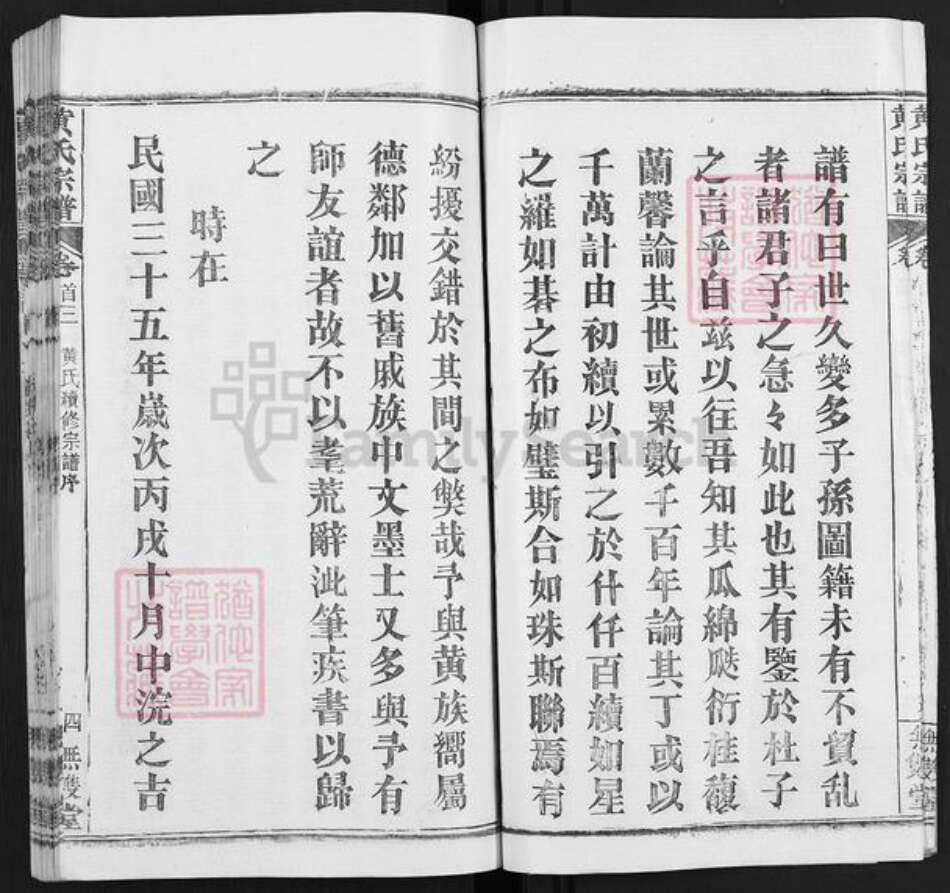 黃氏宗譜
無雙堂
譜有曰世久變多子孫圖籍未有不貿乱
者諸君子之急々如此也其有鑒於杜子
之言乎自玆以往吾知其瓜綿瓞衍桂馥
蘭馨論其世或累數千百年論其丁或以
千萬計由初續以引之於什仟百續如星
之羅如碁之布如璧斯合如珠斯聯焉有
紛擾交錯於其間之獘哉予與黄族鄉屬
德鄰加以舊戚族中文墨士又多與予有
師友誼者故不以耄荒辭泚筆疾書以歸
之
時在
民國三十五年嵗次丙戌十月中浣之吉
黃氏宗譜 卷首三 黄氏續修宗譜序 四 無雙堂
FamilySearch